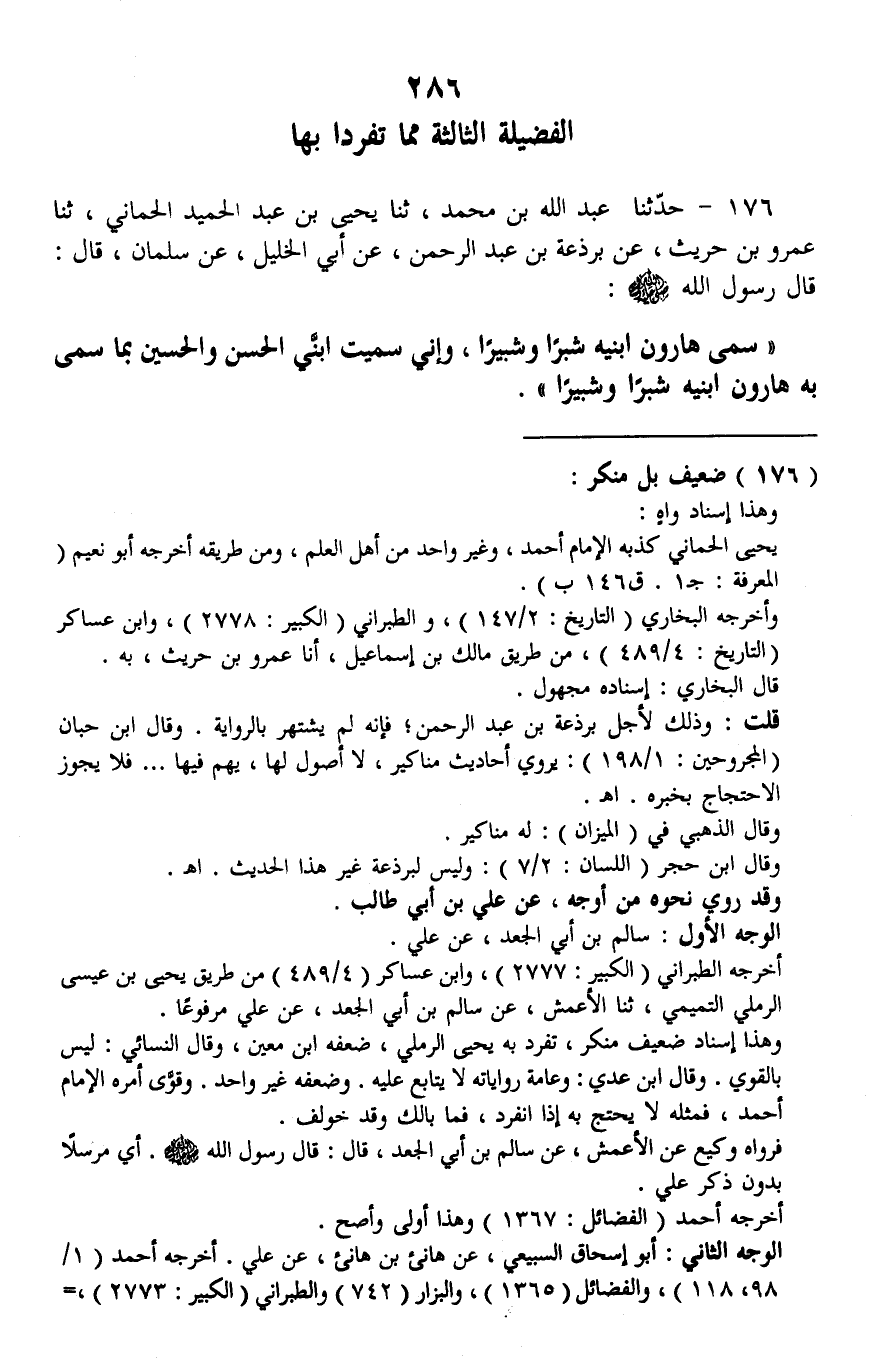 ٢٨٦
الفضيلة الثالثة مما تفردا بها
١٧٦ - حدّثنا عبد الله بن محمد ، ثنا يحيى بن عبد الحميد الحماني ، ثنا
عمرو بن حريث ، عن برذعة بن عبد الرحمن ، عن أبي الخليل ، عن سلمان ، قال :
قال رسول الله ﷺ :
« سمى هارون ابنيه شبرًا وشبيرًا ، وإني سميت ابنَّي الحسن والحسين بما سمى
به هارون ابنيه شبرًا وشبيرًا » .
( ١٧٦ ) ضعيف بل منكر :
وهذا إسناد واهٍ :
يحيى الحماني كذبه الإمام أحمد ، وغير واحد من أهل العلم ، ومن طريقه أخرجه أبو نعيم (
المعرفة : جـ١ . ق١٤٦ ب ) .
وأخرجه البخاري ( التاريخ : ١٤٧/٢ ) ، و الطبراني ( الكبير : ٢٧٧٨ ) ، وابن عساكر
( التاريخ : ٤٨٩/٤ ) ، من طريق مالك بن إسماعيل ، أنا عمرو بن حريث ، به .
قال البخاري : إسناده مجهول .
قلت : وذلك لأجل برذعة بن عبد الرحمن؛ فإنه لم يشتهر بالرواية . وقال ابن حبان
( المجروحين : ١٩٨/١ ) : يروي أحاديث مناكير ، لا أصول لها ، يهم فيها ... فلا يجوز
الاحتجاج بخبره . اهـ .
وقال الذهبي في ( الميزان ) : له مناكير .
وقال ابن حجر ( اللسان : ٧/٢ ) : وليس لبرذعة غير هذا الحديث . اهـ .
وقد روي نحوه من أوجه ، عن علي بن أبي طالب .
الوجه الأول : سالم بن أبي الجعد ، عن علي .
أخرجه الطبراني ( الكبير : ٢٧٧٧ ) ، وابن عساكر ( ٤٨٩/٤ ) من طريق يحيى بن عيسى
الرملي التميمي ، ثنا الأعمش ، عن سالم بن أبي الجعد ، عن علي مرفوعًا .
وهذا إسناد ضعيف منكر ، تفرد به يحيى الرملي ، ضعفه ابن معين ، وقال النسائي : ليس
بالقوي . وقال ابن عدي : وعامة رواياته لا يتابع عليه . وضعفه غير واحد . وقوَّى أمره الإمام
أحمد ، فمثله لا يحتج به إذا انفرد ، فما بالك وقد خولف .
فرواه وكيع عن الأعمش ، عن سالم بن أبي الجعد ، قال : قال رسول الله ﷺ . أي مرسلًا
بدون ذكر علي .
أخرجه أحمد ( الفضائل : ١٣٦٧ ) وهذا أولى وأصح .
الوجه الثاني : أبو إسحاق السبيعي ، عن هانئ بن هانئ ، عن علي . أخرجه أحمد ( ١/
٩٨، ١١٨ ) ، والفضائل ( ١٣٦٥ ) ، والبزار ( ٧٤٢ ) والطبراني ( الكبير : ٢٧٧٣ ) ،=